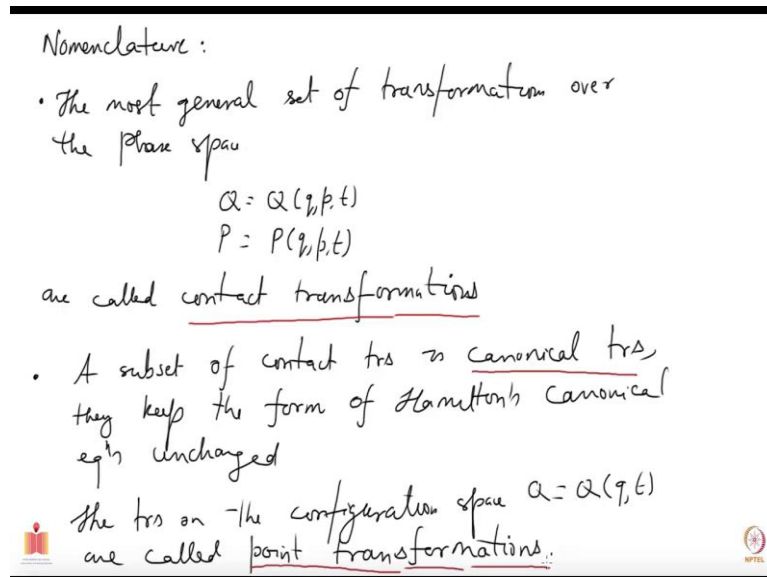 Nomenclature :
• The most general set of transformation over
the phase space
Q = Q(q,p,t)
P = P(q,p,t)
are called contact transformations
• A subset of contact trs is canonical trs,
they keep the form of Hamilton's canonical
eqns unchanged
The trs on the configuration space Q = Q(q,t)
are called point transformations.
NPTEL